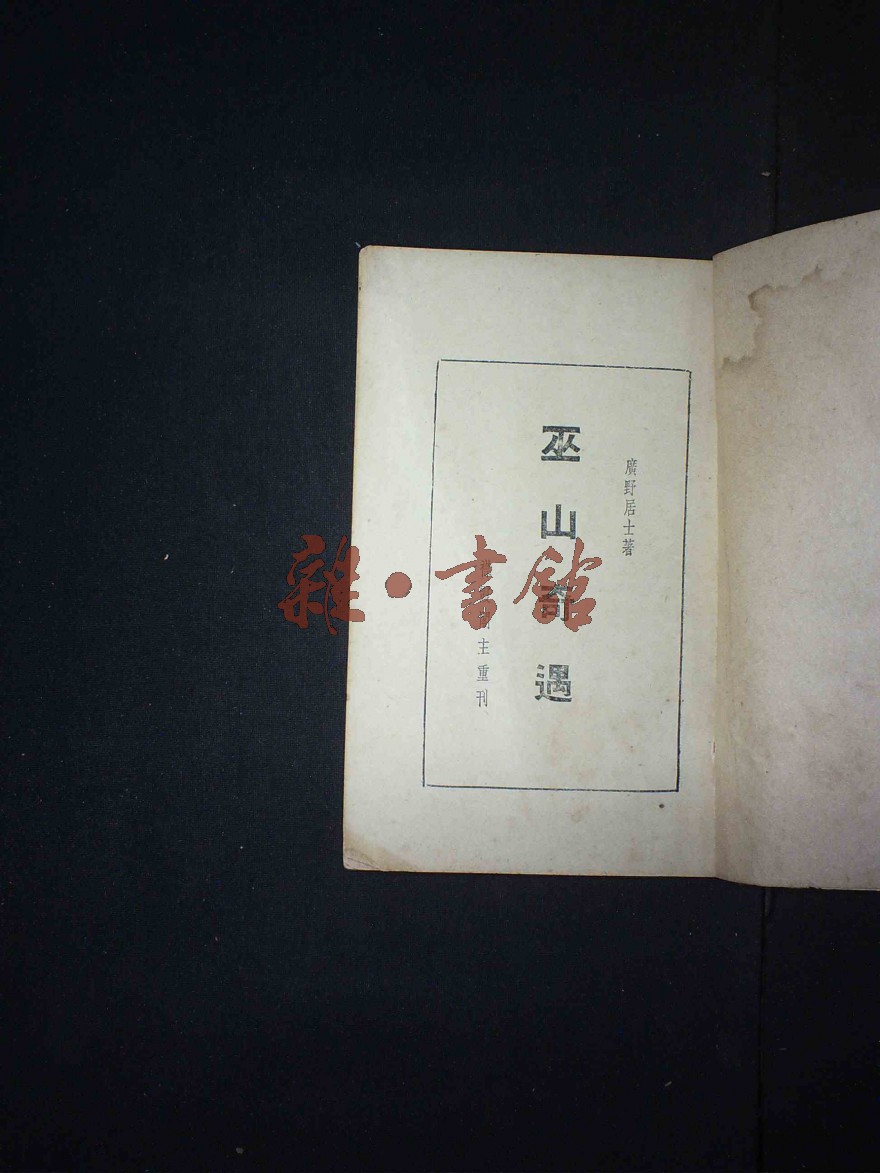 廣野居士著
巫山奇遇
主重刊
雜·書館